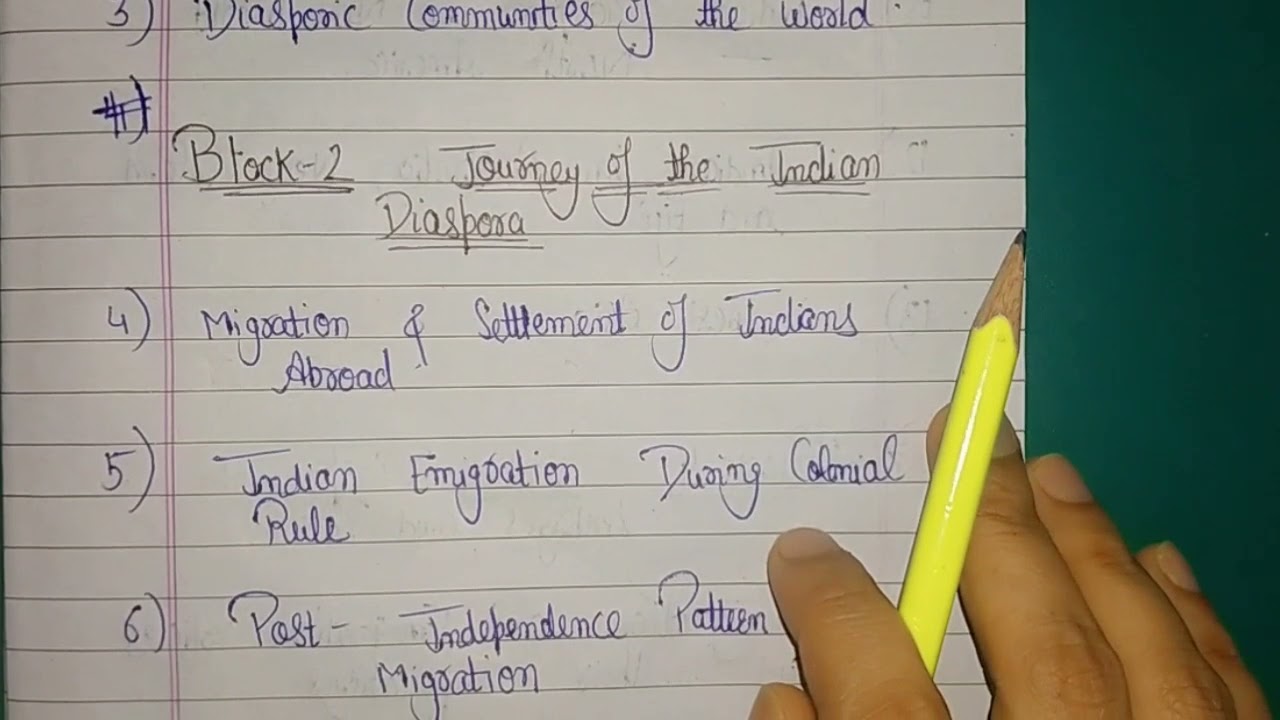 3) Diasporic Communities of the World
#)
Block-2 Journey of the Indian
Diaspora
4) Migration & Settlement of Indians
Abroad
5) Indian Emigration During Colonial
Rule
6) Post- Independence Pattern
Migration